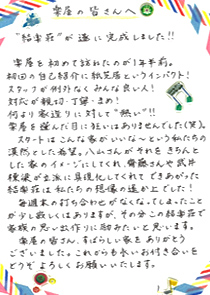 楽座の皆さんへ
"結楽荘"が遂に完成しました!!
楽座を初めて訪れたのが1年半前。
初回の自己紹介に紙芝居というインパクト!
スタッフが例外なくみんな良い人!
対応が親切・丁寧・まめ!
何より家造りに対して"熱い"!!
楽座を選んだ目に狂いはありませんでした(笑)。
スタートはこんな家がいいな～という私たちの
漠然とした希望。八山さんがそれをきちんと
した家のイメージにしてくれ、齋藤さんや武井
棟梁が立派に具現化してくれてできあがった
結楽荘は私たちの想像の遥か上でした!
毎週末の打ち合わせがなくなってしまったこと
が少し寂しくはありますが、その分この結楽荘で
家族の思い出作りに励みたいと思います。
楽座の皆さん、すばらしい家をありがとう
ございました。これからも永いお付き合いを
どうぞよろしくお願いいたします。